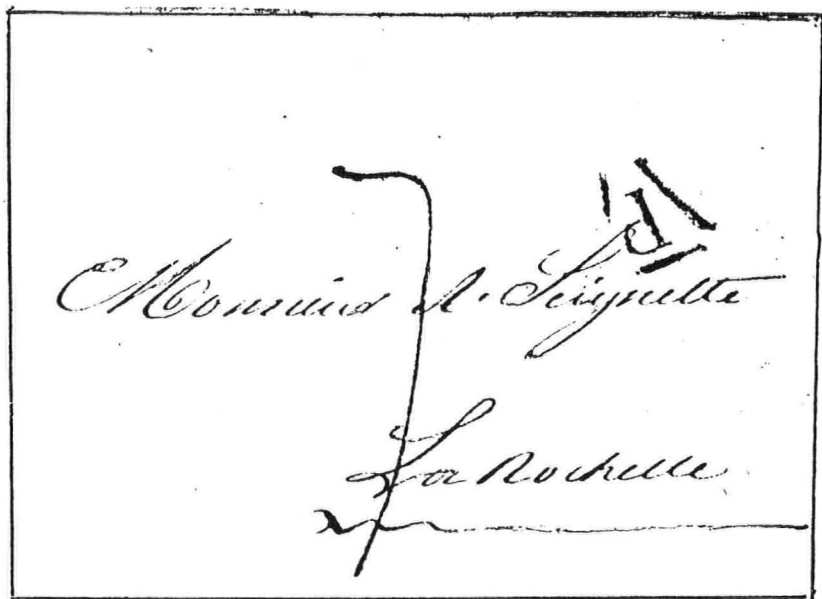 Monsieur A. Seignette
La Rochelle
7